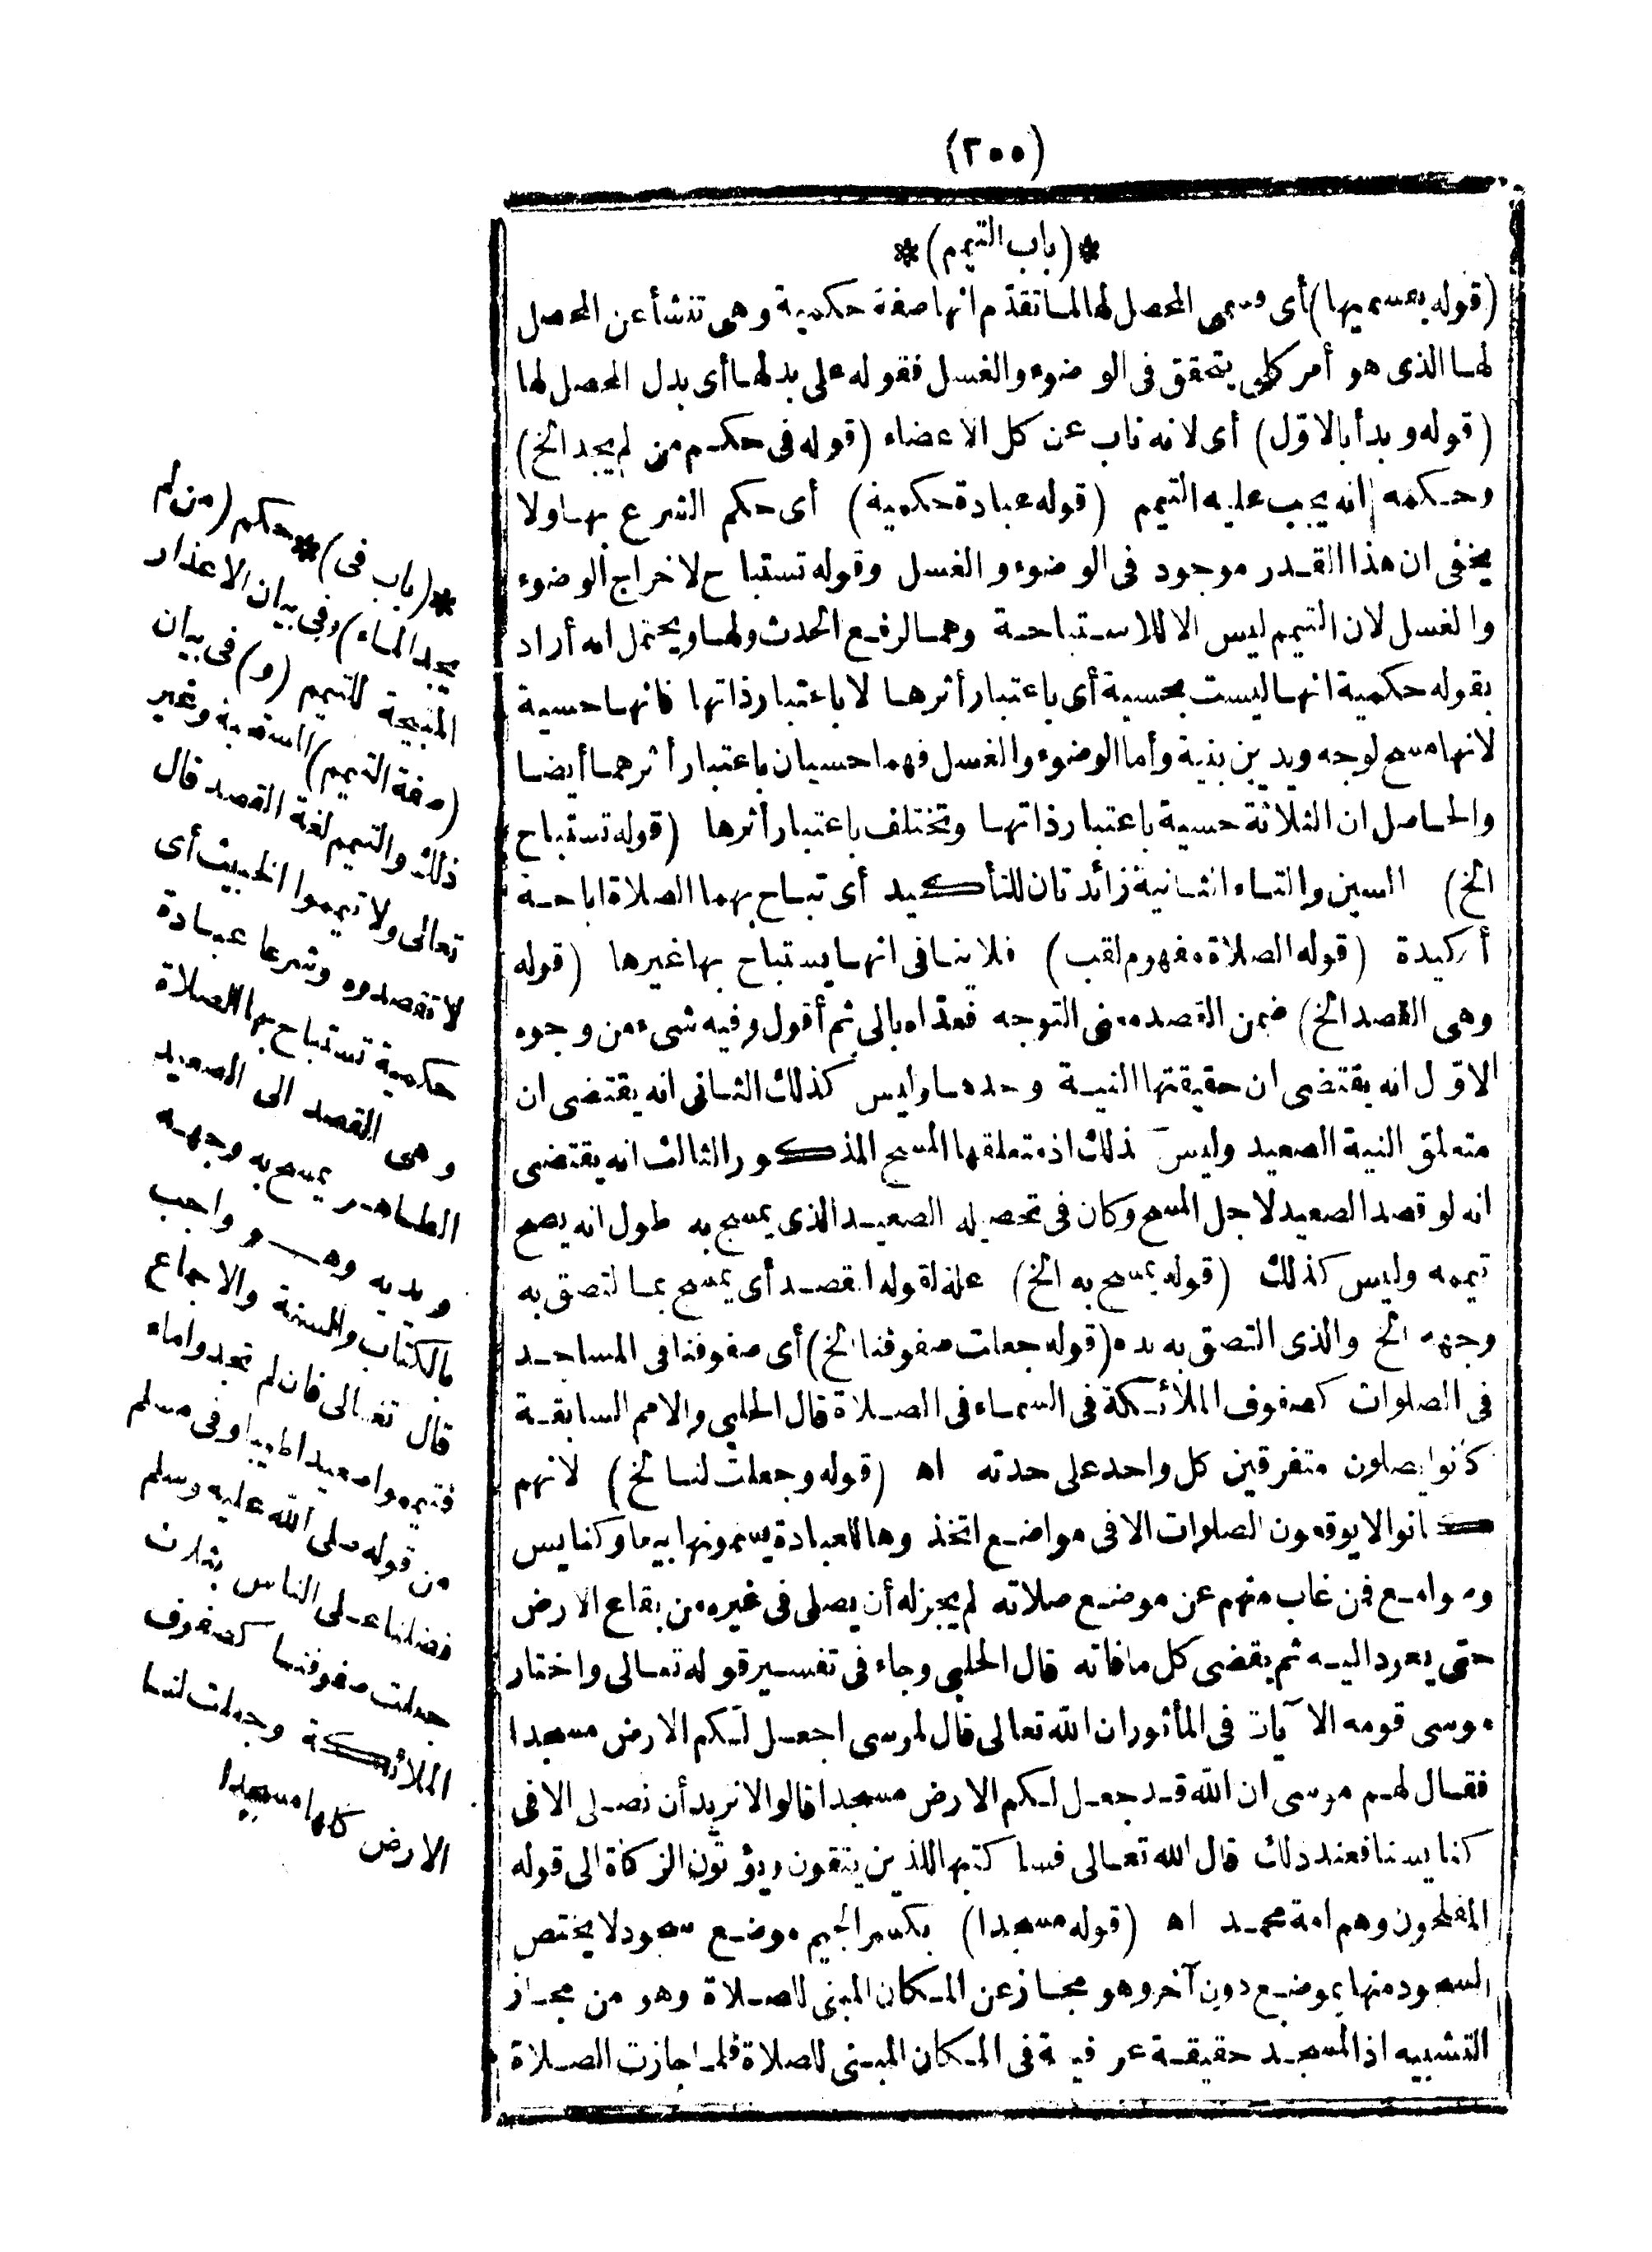 (٢٠٠)
*(باب التيمم)*
(قوله بقسميها) أى قسمى المحصل لها لما تقدّم انها صفة حكمية وهى تنشأ عن المحصل
لها الذى هو أمر كلى يتحقق فى الوضوء والغسل فقوله على بدلها أى بدل المحصل لها
(قوله وبدأ بالاوّل) أى لانه ناب عن كل الاعضاء (قوله فى حكم من لم يجد الخ)
وحكمه انه يجب عليه التيمم (قوله عبادة حكمية) أى حكم الشرع بها ولا
يخفى ان هذا القدر موجود فى الوضوء والغسل وقوله تستباح لاخراج الوضوء
والغسل لان التيمم ليس الا للاستباحة وهما لرفع الحدث ولها ويحتمل انه أراد
بقوله حكمية انها ليست بحسية أى باعتبار أثرها لا باعتبار ذاتها فانها حسية
لانها مسح لوجه ويدين بنية وأما الوضوء والغسل فهما حسيان باعتبار أثرهما أيضا
والحاصل ان الثلاثة حسية باعتبار ذاتها وتختلف باعتبار أثرها (قوله تستباح
الخ) السين والتاء الثانية زائدتان للتأكيد أى تباح بهما الصلاة اباحة
أكيدة (قوله الصلاة مفهوم لقب) فلا ينافى انها يستباح بها غيرها (قوله
وهى القصد الخ) ضمن القصد معنى التوجه فعدّاه بالى ثم أقول وفيه شىء من وجوه
الاوّل انه يقتضى ان حقيقتها النية وحدها وليس كذلك الثانى انه يقتضى ان
متعلق النية الصعيد وليس ذلك اذ متعلقها المسح المذكور الثالث انه يقتضى
انه لو قصد الصعيد لاجل المسح وكان فى تحصيله الصعيد الذى يمسح به طول انه يصح
تيممه وليس كذلك (قوله يمسح به الخ) علة لقوله القصد أى يمسح بما التصق به
وجهه الخ والذى التصق به يده (قوله جعلت صفوفنا الخ) أى صفوفنا فى المساجد
فى الصلوات كصفوف الملائكة فى السماء فى الصلاة قال الحلبى والامم السابقة
كانوا يصلون متفرقين كل واحد على حدته اه (قوله وجعلت لنا الخ) لانهم
كانوا لا يوقعون الصلوات الا فى مواضع اتخذوها للعبادة يسمونها بيعا وكنايس
وصوامع فمن غاب منهم عن موضع صلاته لم يجز له أن يصلى فى غيره من بقاع الارض
حتى يعود اليه ثم يقضى كل ما فاته قال الحلبى وجاء فى تفسير قوله تعالى واختار
موسى قومه الآيات فى المأثور ان الله تعالى قال لموسى اجعل لكم الارض مسجدا
فقال لهم موسى ان الله قد جعل لكم الارض مسجدا قالوا لا نريد أن نصلى الا فى
كنايسنا فعند ذلك قال الله تعالى فسأكتبها للذين يتقون ويؤتون الزكاة الى قوله
المفلحون وهم امة محمد اه (قوله مسجدا) بكسر الجيم موضع سجود لا يختص
السجود منها بموضع دون آخر وهو مجاز عن المكان المبنى للصلاة وهو من مجاز
التشبيه اذ المسجد حقيقة عرفية فى المكان المبنى للصلاة فلما جازت الصلاة
*(باب فى)* حكم (من لم
يجد الماء) وفى بيان الاعذار
المبيحة للتيمم (و) فى بيان
(صفة التيمم) المستعبة وغير
ذلك والتيمم لغة القصد قال
تعالى ولا تيمموا الخبيث أى
لا تقصدوه وشرعا عبادة
حكمية تستباح بها الصلاة
وهى القصد الى الصعيد
الطاهر يمسح به وجهه
ويديه وهو واجب
بالكتاب والسنة والاجماع
قال تعالى فان لم تجدوا ماء
فتيمموا صعيدا طيبا وفى مسلم
من قوله صلى الله عليه وسلم
فضلنا على الناس بثلاث
جعلت صفوفنا كصفوف
الملائكة وجعلت لنا
الارض كلها مسجدا